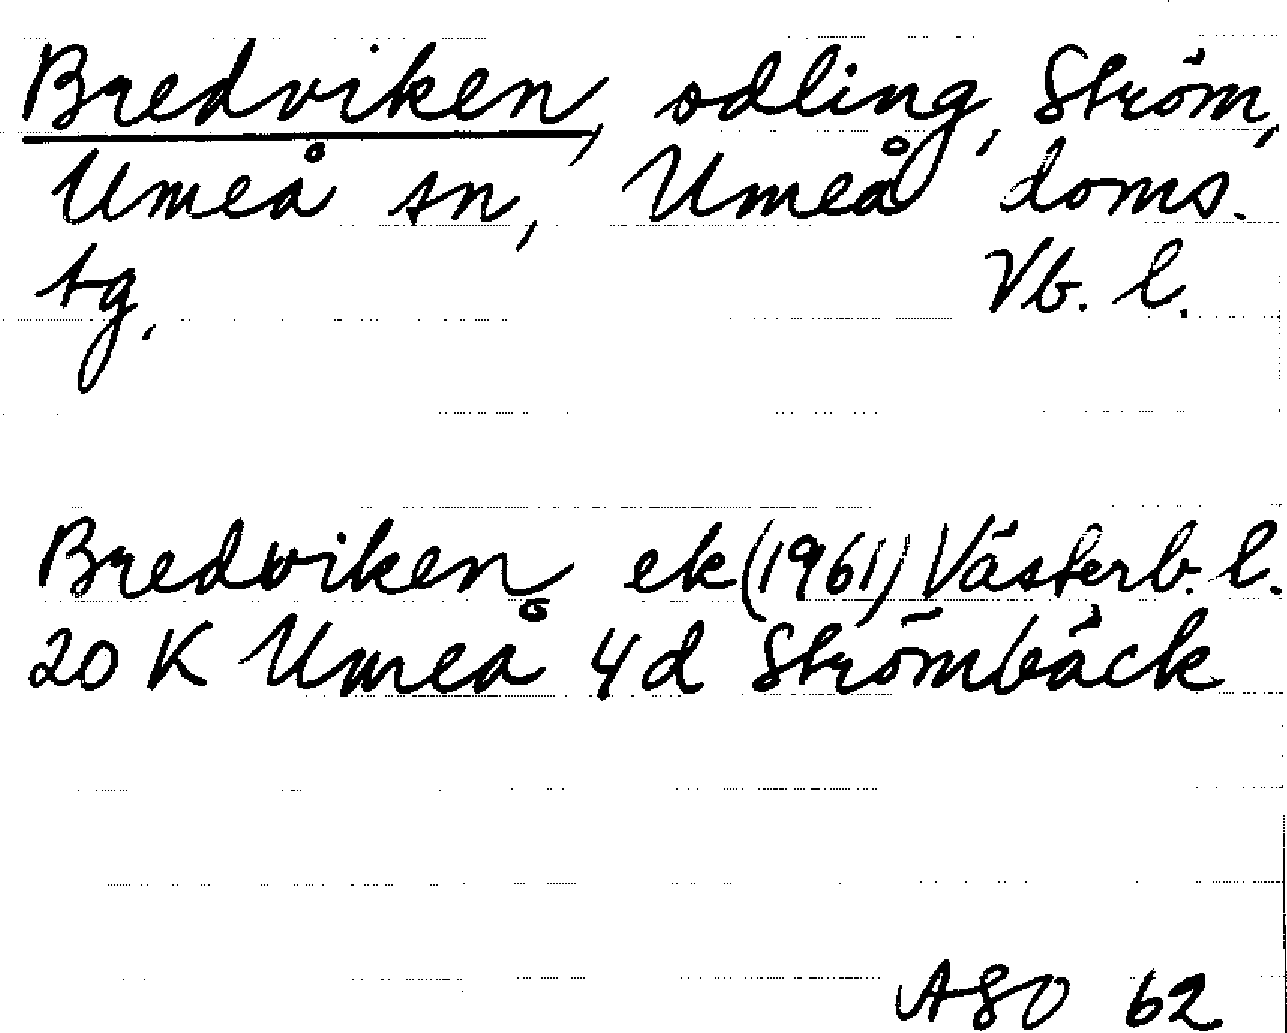 Bredviken, odling, Ström,
Umeå sn, Umeå doms.
tg. Vb. l.
Bredviken ek (1961) Västerb. l.
20 K Umeå 4d Strömbäck
ASO 62